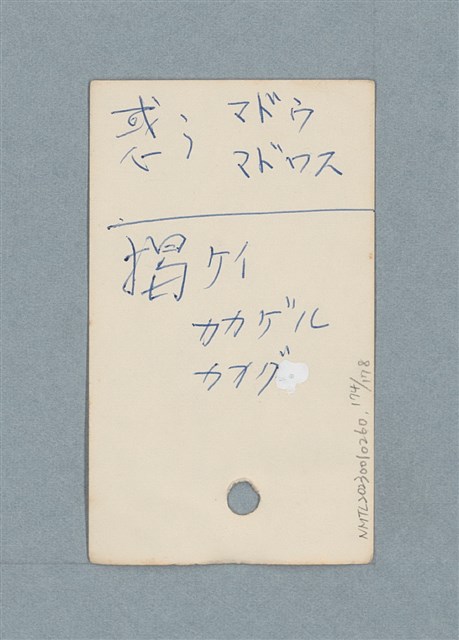 惑う マドウ
マドワス
掲 ケイ
カカゲル
カオグ
NMTL20230010260, 174/178